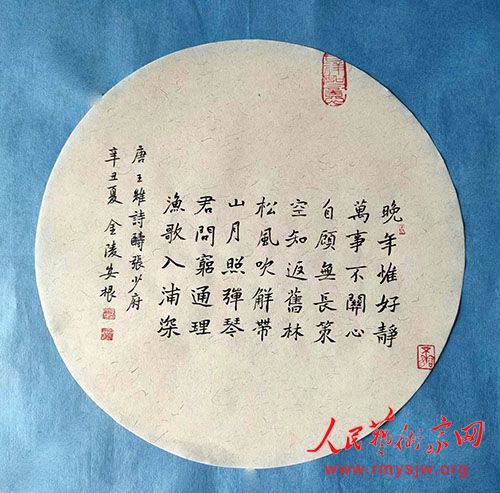 晚年惟好靜
萬事不關心
自顧無長策
空知返舊林
松風吹解帶
山月照彈琴
君問窮通理
漁歌入浦深
唐王維詩酬張少府
辛丑夏金陵安根
人民藝術家网
www.rmysjw.org